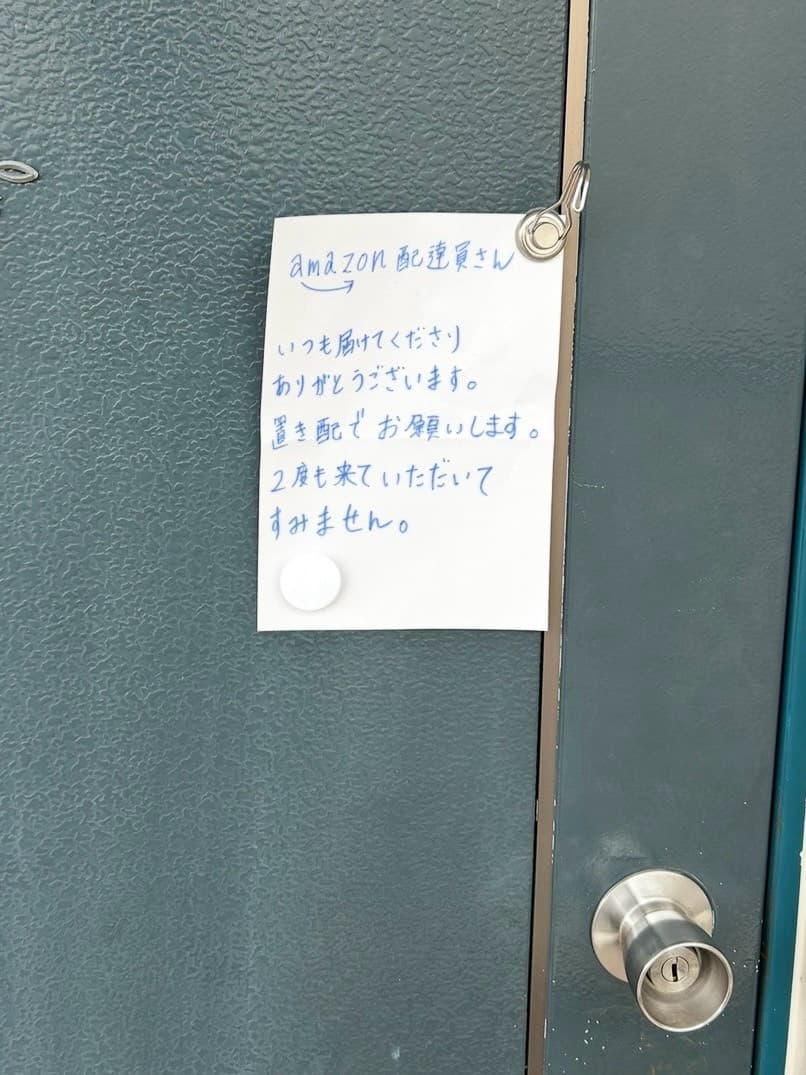 amazon 配達員さん
いつも届けてくださり
ありがとうございます。
置き配でお願いします。
2度も来ていただいて
すみません。